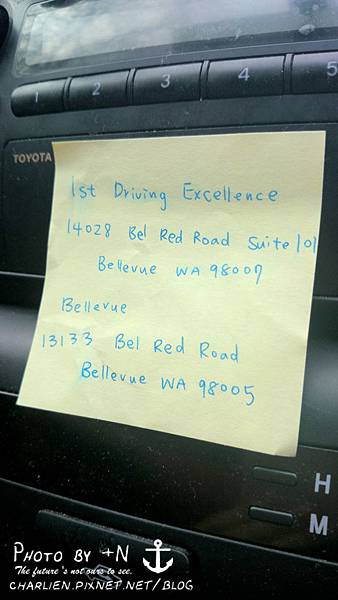 1 2 3 4 5
TOYOTA
1st Driving Excellence
14028 Bel Red Road Suite 101
Bellevue WA 98007
Bellevue
13133 Bel Red Road
Bellevue WA 98005
H
M
PHOTO BY +N
The future's not ours to see.
CHARLIEN.PIXNET.NET/BLOG